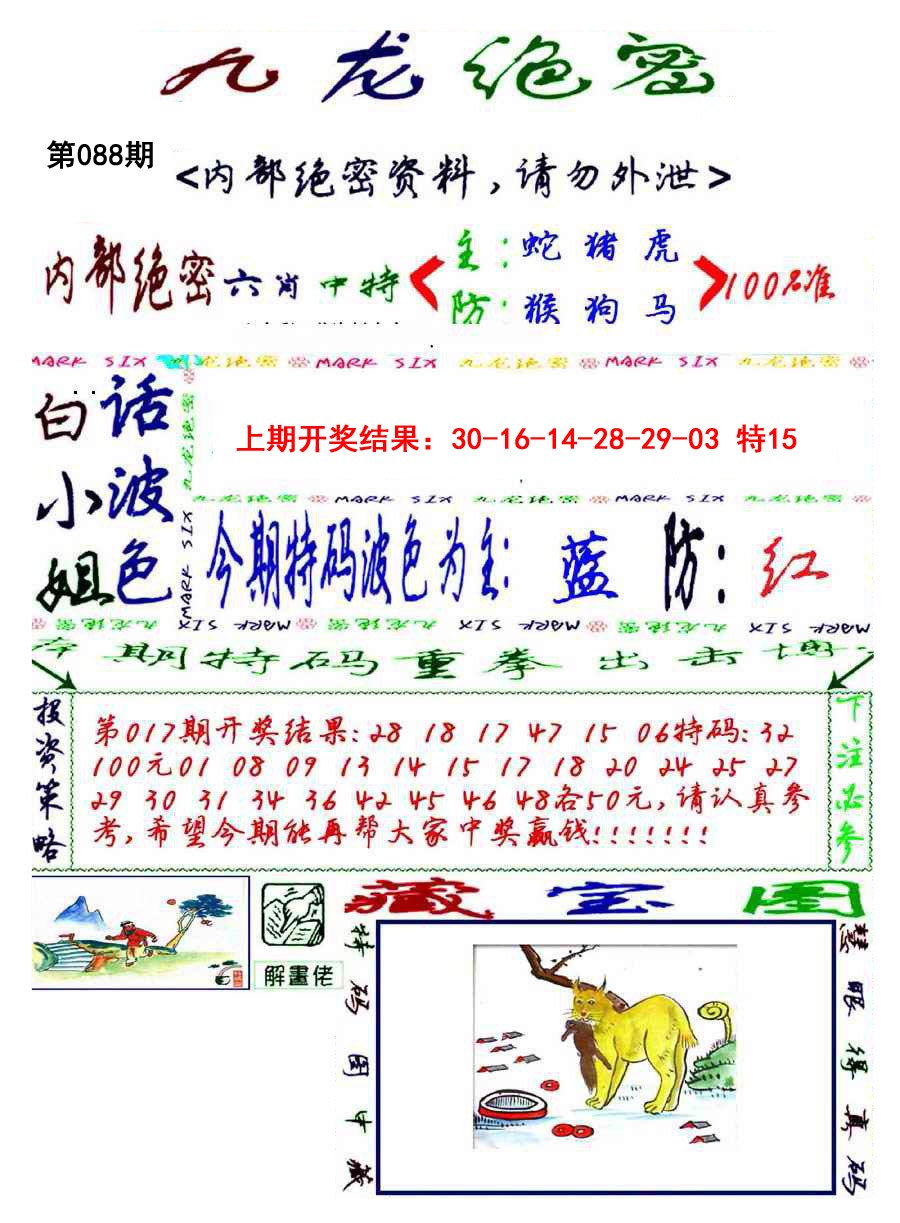 九龙绝密
第088期
<内部绝密资料,请勿外泄>
内部绝密六肖中特
主:蛇猪虎
防:猴狗马
100%准
MARK SIX 九龙绝密 MARK SIX 九龙绝密 MARK SIX 九龙绝密
白话
小波
姐色
九龙绝密
MARK SIX
上期开奖结果：30-16-14-28-29-03 特15
九龙绝密 MARK SIX 九龙绝密 MARK SIX 九龙绝密
今期特码波色为主:蓝 防:红
九龙绝密 MARK SIX 九龙绝密 MARK SIX 九龙绝密 MARK SIX
期特码重拳出击
投资策略
第017期开奖结果:28 18 17 47 15 06特码:32
100元01 08 09 13 14 15 17 18 20 24 25 27
29 30 31 34 36 42 45 46 48各50元,请认真参
考,希望今期能再帮大家中奖赢钱!!!!!!!
下注必参
解畫佬
藏宝图
特码图中藏
慧眼得真码